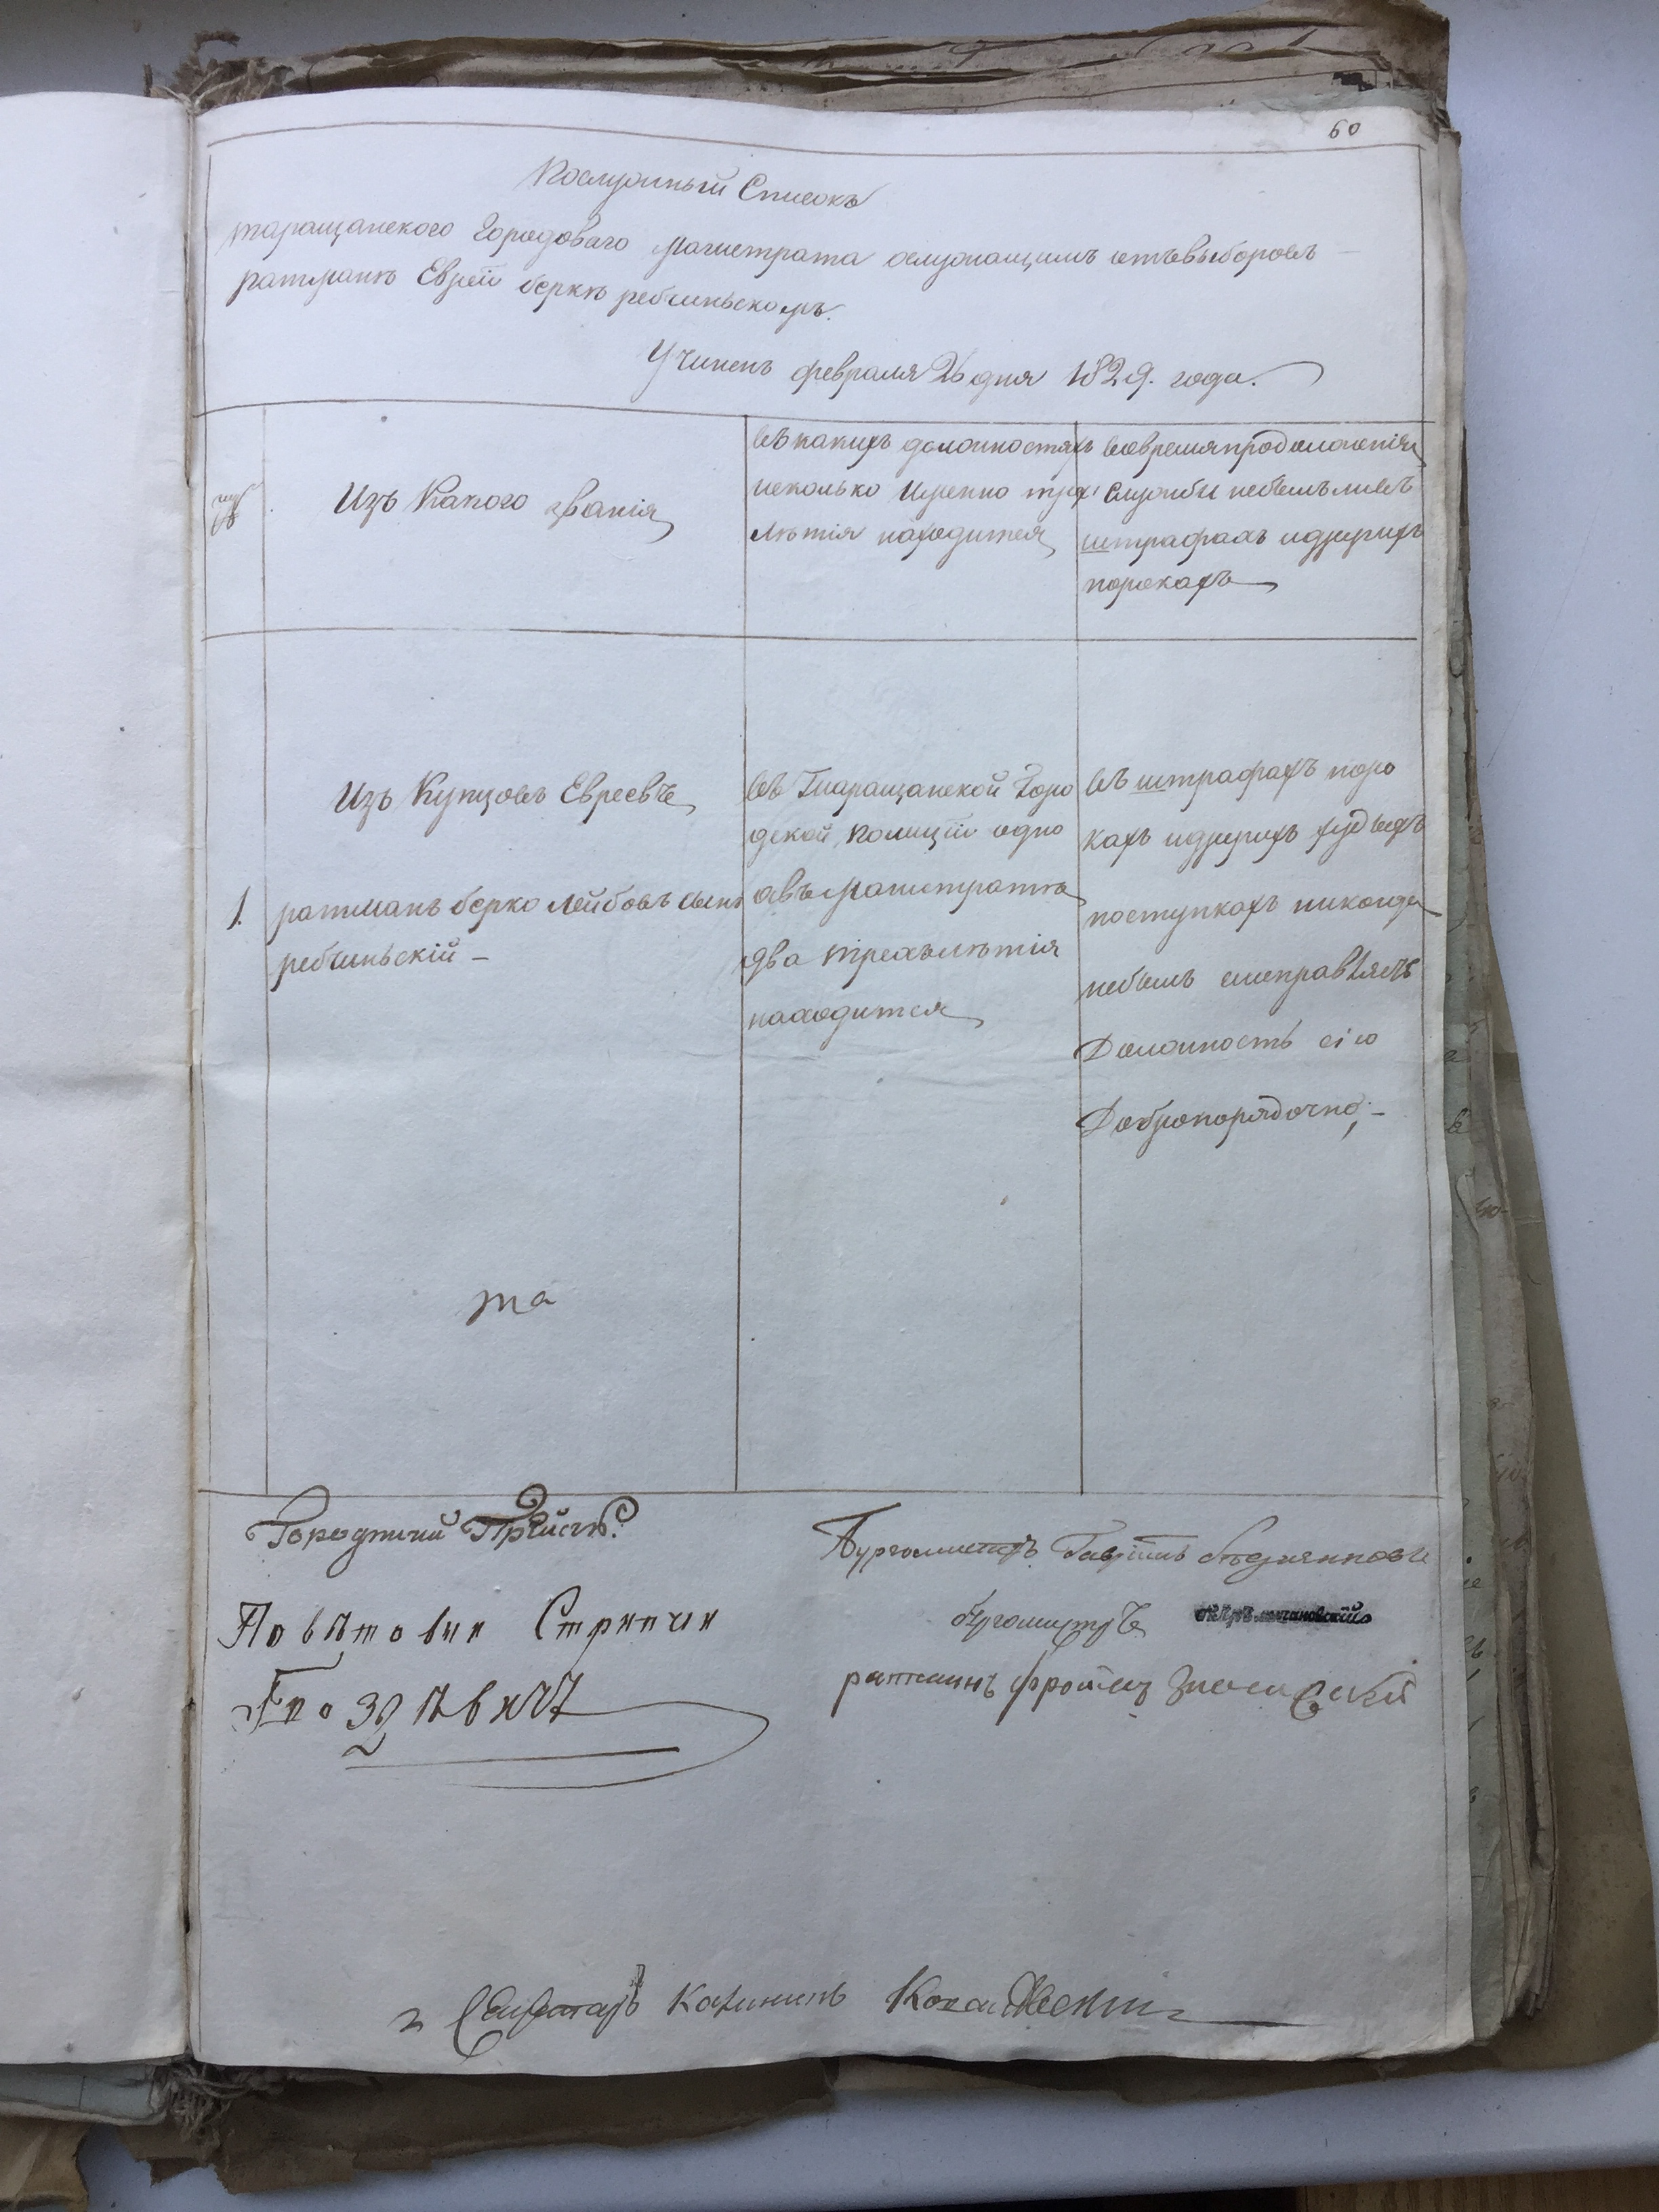 60
Послужный Списокъ
таращанского Городоваго Магистрата ослужащимъ изъвыборовъ
ратманъ Еврей берке ребчиньскомъ.
Учиненъ февраля 26 дня 1829. года.
Изъ Какого званія
въ какихъ должностяхъ
исколько имянно трех
лѣтія находится
вовремяпродолженія
Службы небылъ ли въ
штрафахъ идругихъ
порокахъ
Изъ Купцовъ Евреевъ
1. ратманъ берко лейбовъ сынъ
ребчиньскій –
въ Таращанской Горо
дской полиціи одно
авъ Магистратѣ
два трехълѣтія
находится
въ штрафахъ поро
кахъ идругихъ худыхъ
поступкахъ никогда
небылъ иисправлялъ
Должность сію
Добропорядочно, –
та
Городничий
Повѣтовии Стряпчии
Бургомистръ Гавріилъ
бургомистръ
ратманъ
Секретарь